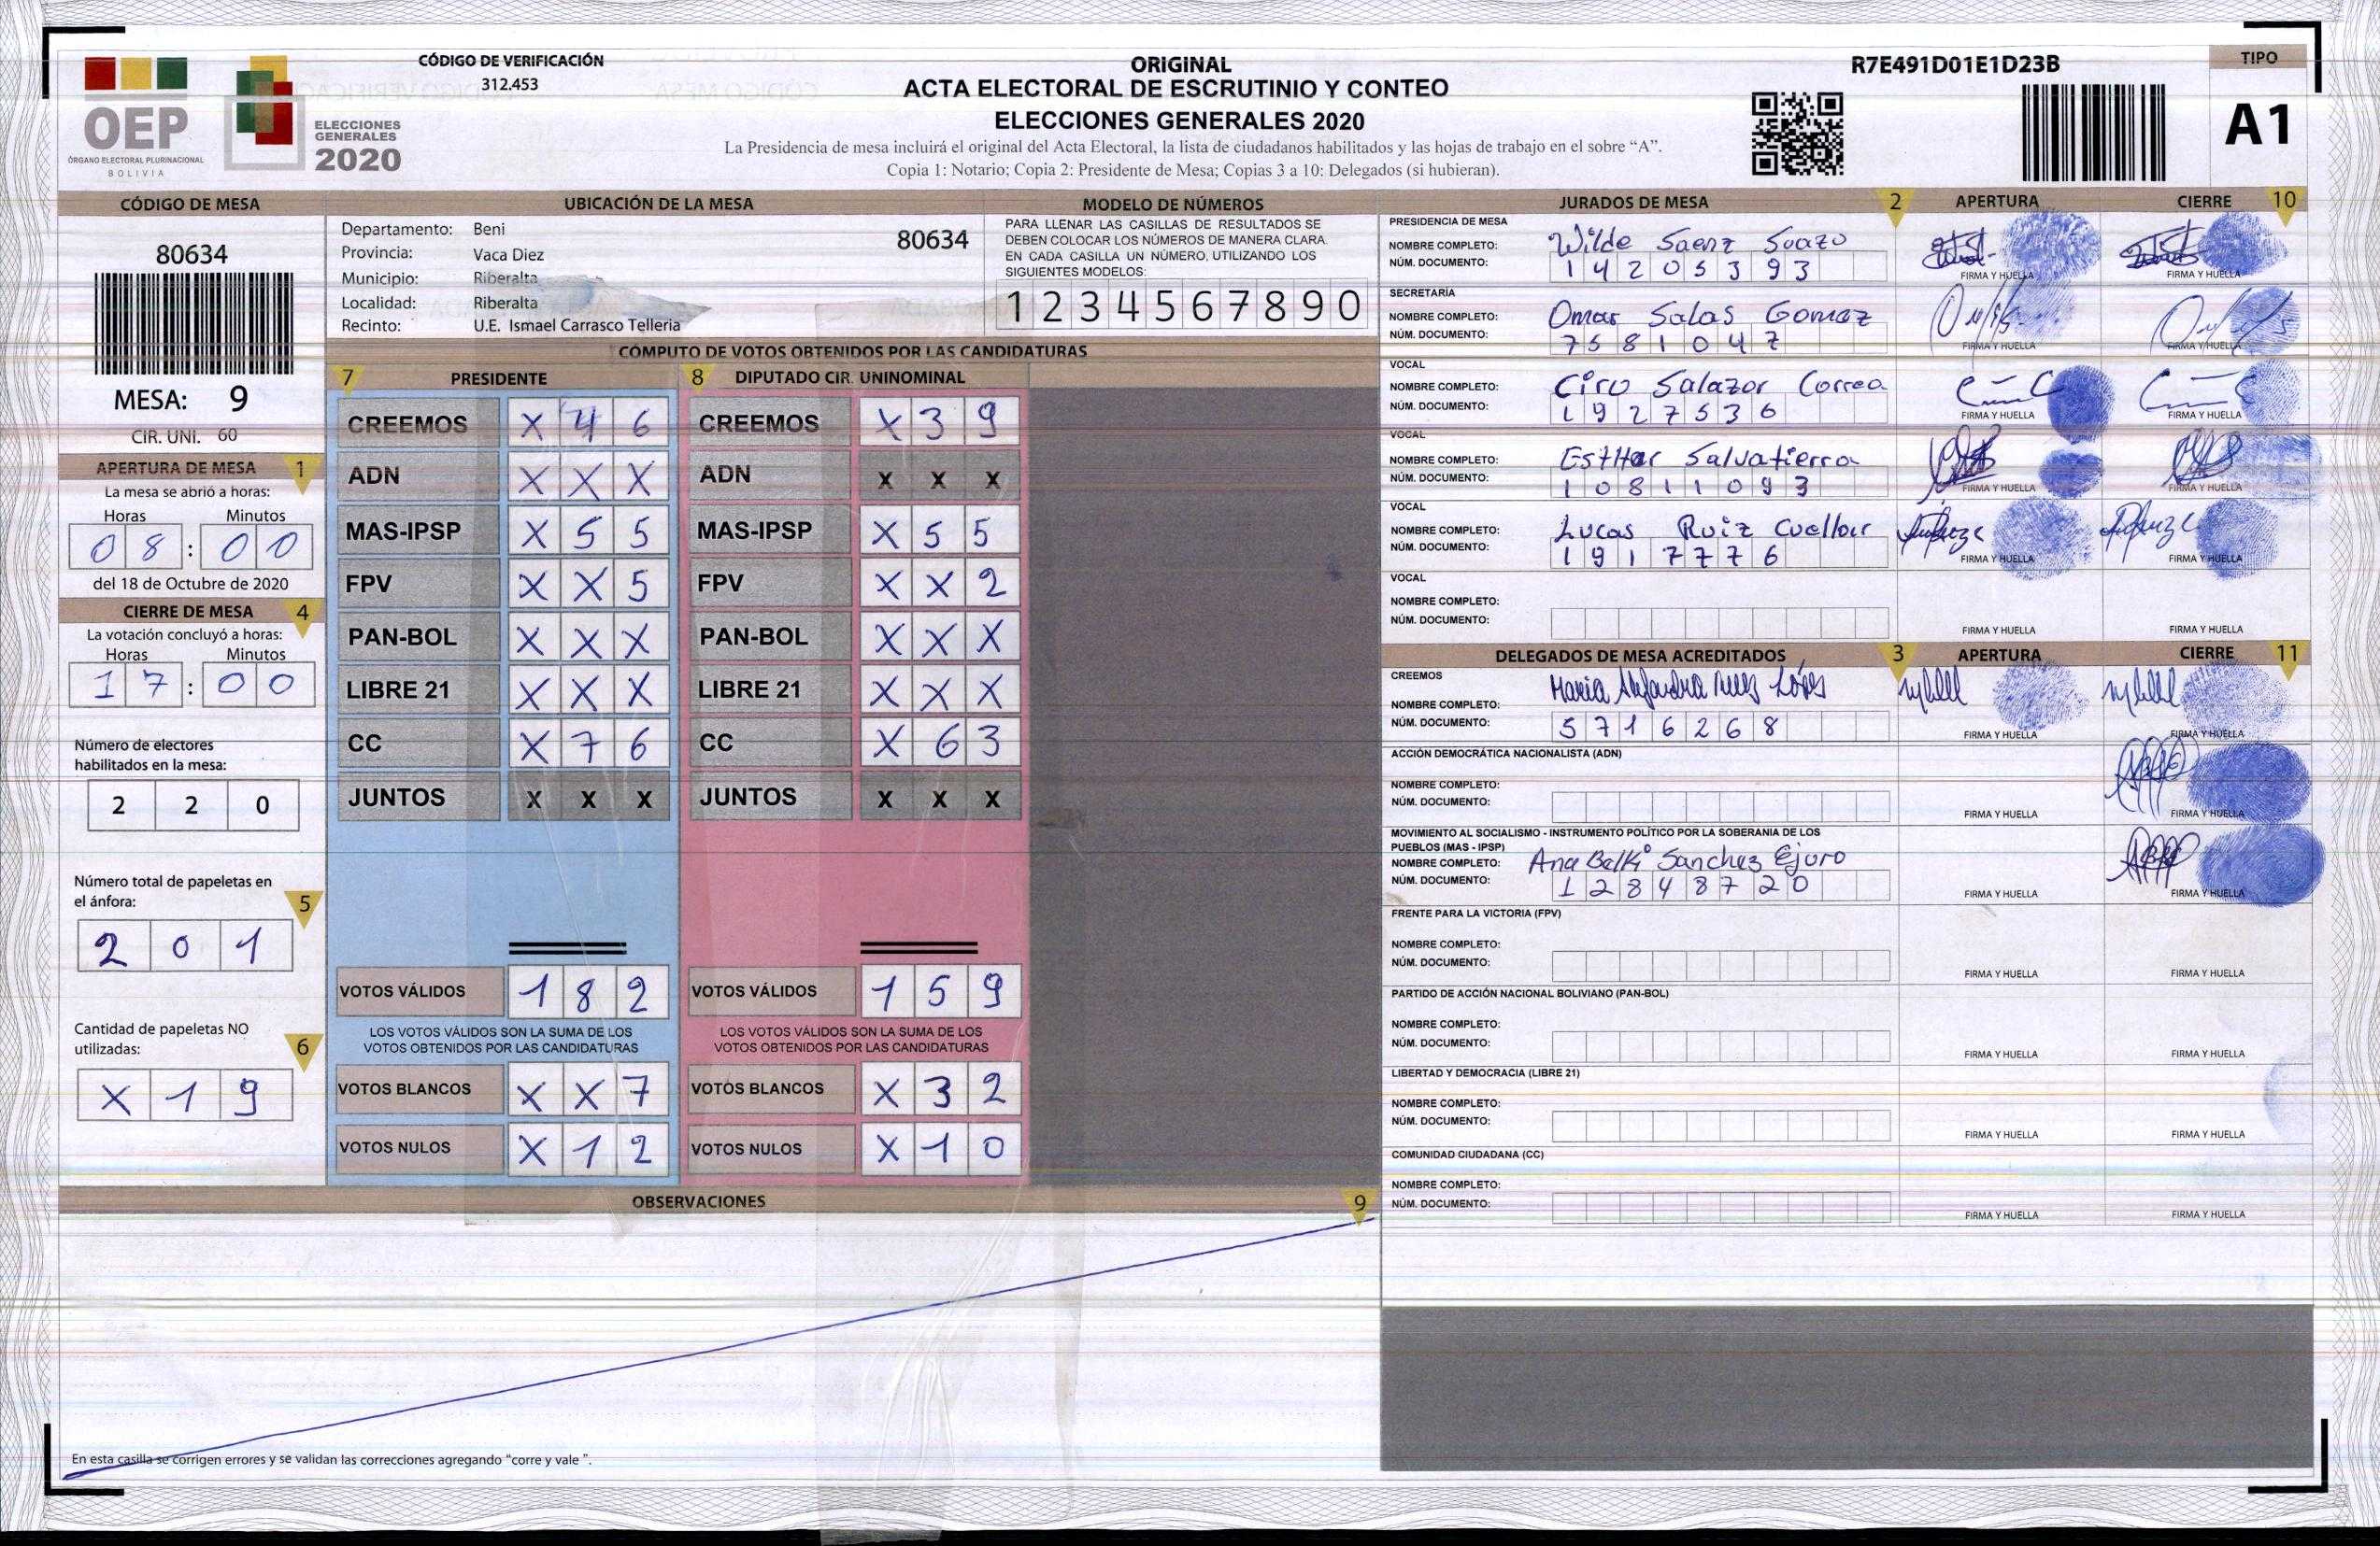 OEP
ÓRGANO ELECTORAL PLURINACIONAL
BOLIVIA
ELECCIONES
GENERALES
2020
CÓDIGO DE VERIFICACIÓN
312.453
ORIGINAL
ACTA ELECTORAL DE ESCRUTINIO Y CONTEO
ELECCIONES GENERALES 2020
La Presidencia de mesa incluirá el original del Acta Electoral, la lista de ciudadanos habilitados y las hojas de trabajo en el sobre “A”.
Copia 1: Notario; Copia 2: Presidente de Mesa; Copias 3 a 10: Delegados (si hubieran).
R7E491D01E1D23B
TIPO
A1
CÓDIGO DE MESA
80634
MESA: 9
CIR. UNI. 60
APERTURA DE MESA 1
La mesa se abrió a horas:
Horas Minutos
08:00
del 18 de Octubre de 2020
CIERRE DE MESA 4
La votación concluyó a horas:
Horas Minutos
17:00
Número de electores
habilitados en la mesa:
2 2 0
Número total de papeletas en
el ánfora: 5
2 0 1
Cantidad de papeletas NO
utilizadas: 6
X 1 9
UBICACIÓN DE LA MESA
Departamento: Beni
80634
Provincia: Vaca Diez
Municipio: Riberalta
Localidad: Riberalta
Recinto: U.E. Ismael Carrasco Telleria
MODELO DE NÚMEROS
PARA LLENAR LAS CASILLAS DE RESULTADOS SE
DEBEN COLOCAR LOS NÚMEROS DE MANERA CLARA.
EN CADA CASILLA UN NÚMERO, UTILIZANDO LOS
SIGUIENTES MODELOS:
1 2 3 4 5 6 7 8 9 0
CÓMPUTO DE VOTOS OBTENIDOS POR LAS CANDIDATURAS
7 PRESIDENTE 8 DIPUTADO CIR. UNINOMINAL
CREEMOS X 4 6 CREEMOS X 3 9
ADN X X X ADN X X X
MAS-IPSP X 5 5 MAS-IPSP X 5 5
FPV X X 5 FPV X X 2
PAN-BOL X X X PAN-BOL X X X
LIBRE 21 X X X LIBRE 21 X X X
CC X 7 6 CC X 6 3
JUNTOS X X X JUNTOS X X X
VOTOS VÁLIDOS 1 8 2 VOTOS VÁLIDOS 1 5 9
LOS VOTOS VÁLIDOS SON LA SUMA DE LOS LOS VOTOS VÁLIDOS SON LA SUMA DE LOS
VOTOS OBTENIDOS POR LAS CANDIDATURAS VOTOS OBTENIDOS POR LAS CANDIDATURAS
VOTOS BLANCOS X X 7 VOTOS BLANCOS X 3 2
VOTOS NULOS X 1 2 VOTOS NULOS X 1 0
OBSERVACIONES 9
En esta casilla se corrigen errores y se validan las correcciones agregando “corre y vale ”.
JURADOS DE MESA 2 APERTURA CIERRE 10
PRESIDENCIA DE MESA
NOMBRE COMPLETO: Wilde Saenz Suazo
NÚM. DOCUMENTO: 14205393
FIRMA Y HUELLA FIRMA Y HUELLA
SECRETARÍA
NOMBRE COMPLETO: Omar Salas Gomez
NÚM. DOCUMENTO: 7581047
FIRMA Y HUELLA FIRMA Y HUELLA
VOCAL
NOMBRE COMPLETO: Ciro Salazar Correa
NÚM. DOCUMENTO: 1927536
FIRMA Y HUELLA FIRMA Y HUELLA
VOCAL
NOMBRE COMPLETO: EstHer Salvatierra
NÚM. DOCUMENTO: 10811093
FIRMA Y HUELLA FIRMA Y HUELLA
VOCAL
NOMBRE COMPLETO: Lucas Ruiz Cuellar
NÚM. DOCUMENTO: 1917776
FIRMA Y HUELLA FIRMA Y HUELLA
VOCAL
NOMBRE COMPLETO:
NÚM. DOCUMENTO:
FIRMA Y HUELLA FIRMA Y HUELLA
DELEGADOS DE MESA ACREDITADOS 3 APERTURA CIERRE 11
CREEMOS
NOMBRE COMPLETO: Maria Alejandra
NÚM. DOCUMENTO: 5716268
FIRMA Y HUELLA FIRMA Y HUELLA
ACCIÓN DEMOCRÁTICA NACIONALISTA (ADN)
NOMBRE COMPLETO:
NÚM. DOCUMENTO:
FIRMA Y HUELLA FIRMA Y HUELLA
MOVIMIENTO AL SOCIALISMO - INSTRUMENTO POLÍTICO POR LA SOBERANIA DE LOS
PUEBLOS (MAS - IPSP)
NOMBRE COMPLETO: Ana Belki Sanchez Ejuro
NÚM. DOCUMENTO: 12848720
FIRMA Y HUELLA FIRMA Y HUELLA
FRENTE PARA LA VICTORIA (FPV)
NOMBRE COMPLETO:
NÚM. DOCUMENTO:
FIRMA Y HUELLA FIRMA Y HUELLA
PARTIDO DE ACCIÓN NACIONAL BOLIVIANO (PAN-BOL)
NOMBRE COMPLETO:
NÚM. DOCUMENTO:
FIRMA Y HUELLA FIRMA Y HUELLA
LIBERTAD Y DEMOCRACIA (LIBRE 21)
NOMBRE COMPLETO:
NÚM. DOCUMENTO:
FIRMA Y HUELLA FIRMA Y HUELLA
COMUNIDAD CIUDADANA (CC)
NOMBRE COMPLETO:
NÚM. DOCUMENTO:
FIRMA Y HUELLA FIRMA Y HUELLA